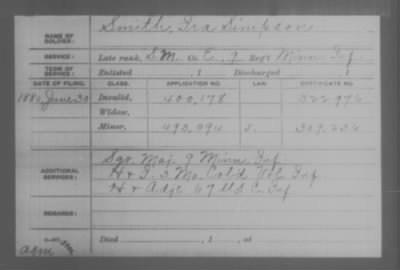 NAME OF SOLDIER: Smith, Ira Simpson
SERVICE: Late rank, S.M. Co. E, 9 Reg't Minn Inf
TERM OF SERVICE: Enlisted , 1 Discharged , 1
DATE OF FILING. CLASS. APPLICATION NO. LAW. CERTIFICATE NO.
1880, June 30 Invalid, 400,178 322,976
Widow,
Minor, 493,094 309,236
ADDITIONAL SERVICES: Sgr. Maj. 9 Minn Inf
H & I. 3 Mo. Col'd Vol Inf
H & Adjt 67 US C. Inf
REMARKS:
Died , 1 , at